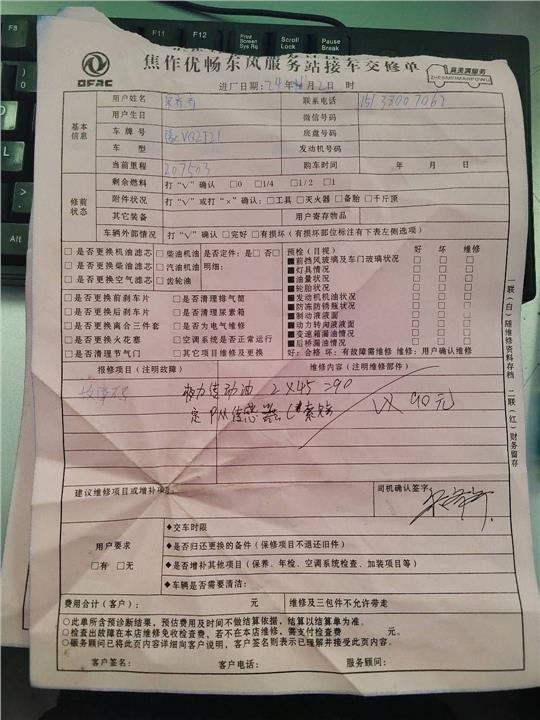 F8
F11
F12
Print
Screen
Sys Rq
Scroll
Lock
Pause
Break
Alt
DFAC
焦作优畅东风服务站接车交修单
真美满服务
ZHENMEIMANFUWU
进厂日期：24年 月2日 时
基本信息
用户姓名
联系电话
用户生日
微信号码
车牌号
底盘号码
车 型
发动机号码
当前里程 207503
购车时间 年 月 日
修前状态
剩余燃料 打“√”确认 □0 □1/4 □1/2 □1
附件状况 打“√”或打“×”确认：□工具 □灭火器 □备胎 □千斤顶
其它装备
用户寄存物品
车辆外部情况 打“√”确认 □完好 □有损坏（有损坏部位标注有下表左侧选项）
□是否更换机油滤芯 □柴油机油 是否定件：是□ 否□
□是否更换柴油滤芯 □汽油机油 明细：
□是否更换空气滤芯 □齿轮油
□是否更换前刹车片 □是否清理排气筒
□是否更换后刹车片 □是否清理尿素箱
□是否更换离合三件套 □是否为电气维修
□是否更换火花塞 □空调系统是否正常运行
□是否清理节气门 □其它项目维修及更换
预检（目视） 好 坏 维修
■前挡风玻璃及车门玻璃状况 □ □ □
■灯具情况 □ □ □
■油量状况 □ □ □
■轮胎状况 □ □ □
■发动机机油状况 □ □ □
■防冻防锈瓶状况 □ □ □
■制动液液面 □ □ □
■动力转向液液面 □ □ □
■变速箱漏油情况 □ □ □
■后桥漏油情况 □ □ □
好：合格 坏：有故障需维修 维修：用户确认维修
报修项目（注明故障）
维修内容（注明维修部件）
助力传动油 2×45=90
定PM传感器
90元
建议维修项目或增补项：
司机确认签字：
用户要求
□有 □无
◆交车时限
◆是否归还更换的备件（保修项目不退还旧件）
◆是否增补其他项目（保养、年检、空调系统检查、加装项目等）
◆车辆是否需要清洁：
费用合计（客户）： 元
维修及三包件不允许带走
○此单所含预诊断结果，预估费用及时间不做结算依据，结算以结算单为准。
○检查出故障在本店维修免收检查费，若不在本店维修，需支付检查费 元。
○服务顾问已将此页内容详细向客户说明，客户签名则表示已理解并接受此页内容。
客户签名： 客户电话： 服务顾问：
一联（白）随维修资料存档 二联（红）财务留存